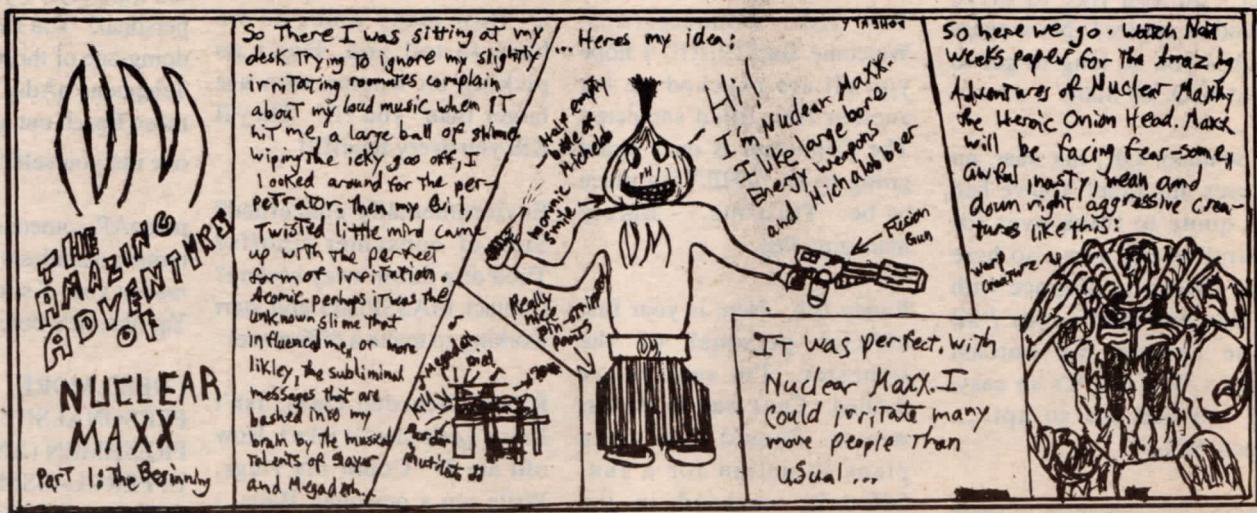 THE
AMAZING
ADVENTURES
OF
NUCLEAR
MAXX
Part 1: The Beginning
So There I was sitting at my
desk Trying To ignore my slightly
irritating roomates complain
about my loud music when IT
hit me, a large ball of slime,
wiping the icky goo off, I
looked around for the per-
petrator; then my Evil
Twisted little mind came
up with the perfect
form of irritation
Atomic. perhaps it was the
unknown slime that
influenced me, or more
likley, the subliminal
messages that are
bashed into my
brain by the musical
Talents of Slayer
and Megadeth...
Kill
Murder
Mutilate
Die!
...Heres my idea:
Half empty
bottle of
Michelob
Maniac
smile
Really
nice
pin-striped
pants
Hi!
I'm Nuclear Maxx.
I like large bore
Energy weapons
and Michalob beer
Fusion
Gun
It was perfect, with
Nuclear Maxx. I
could irritate many
more people Than
Usual...
So here we go. Watch Next
weeks paper for the Amazing
Adventures of Nuclear Maxx,
the Heroic Onion Head. Maxx
will be facing fear-some,
awful, nasty, mean and
down right aggressive crea-
tures like this:
warp
Creature